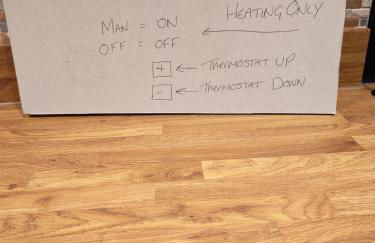 HEATING ONLY
MAN = ON
OFF = OFF
+ ← THERMOSTAT UP
- ← THERMOSTAT DOWN